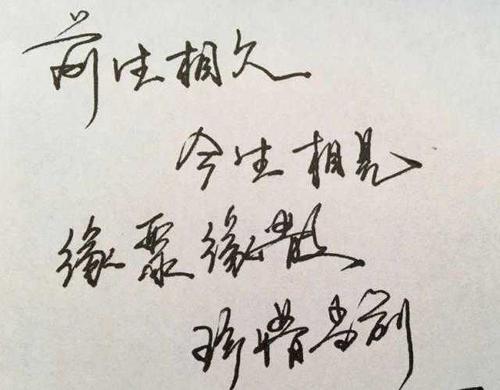 前生相欠
今生相见
缘聚缘散
珍惜当前